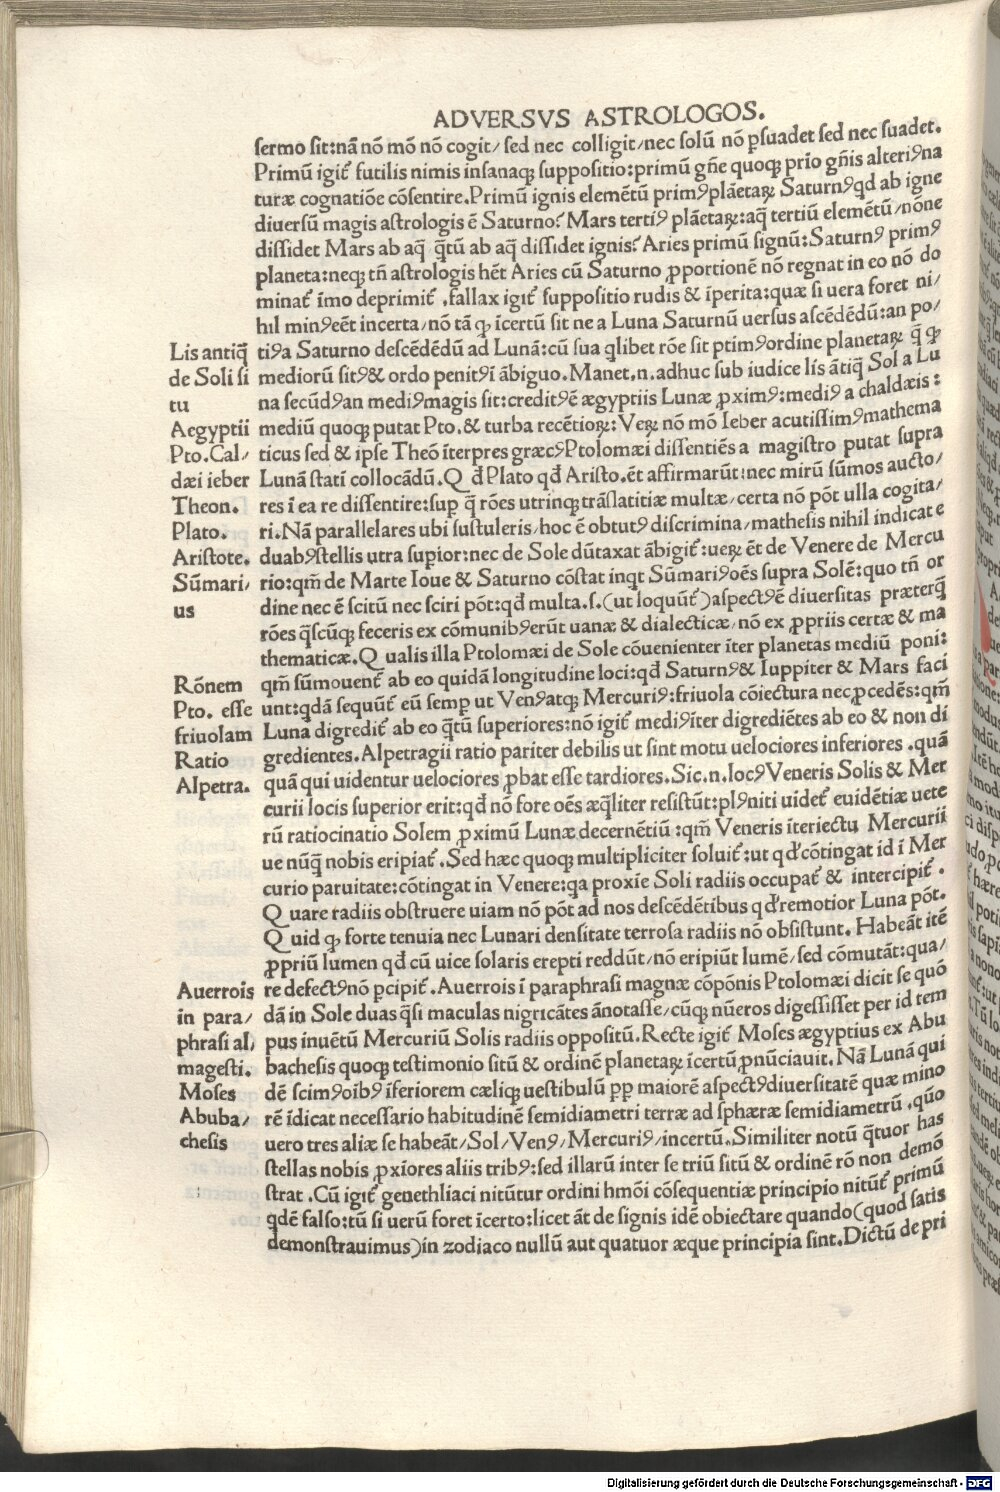 ADVERSVS ASTROLOGOS.
sermo sit:nã nõ mõ nõ cogit/ sed nec colligit/nec solũ nõ ꝑsuadet sed nec suadet.
Primũ igit᷑ futilis nimis insanaqꝫ suppositio:primũ gñe quoqꝫ prio gñis alteriꝰna
turæ cognatiõe cõsentire.Primũ ignis elemẽtũ primꝰplãetaꝝ Saturnꝰqd ab igne
diuersũ magis astrologis ẽ Saturno? Mars tertiꝰ plãetaꝝ:aq̃ tertiũ elemẽtũ/nõne
dissidet Mars ab aq̃ q̃tũ ab aq̃ dissidet ignis? Aries primũ signũ:Saturnꝰ primꝰ
planeta:neqꝫ tñ astrologis hẽt Aries cũ Saturno ꝓportionẽ nõ regnat in eo nõ do
minat᷑ ĩmo deprimit᷑ .fallax igit᷑ suppositio rudis & ĩperita:quæ si uera foret ni/
hil minꝰeẽt incerta/nõ tã ꝙ ĩcertũ sit ne a Luna Saturnũ uersus ascẽdẽdũ:an po/
Lis antiq̃ tiꝰa Saturno descẽdẽdũ ad Lunã:cũ sua qlibet rõe sit ptimꝰordine planetaꝝ q̃ ꝙ
de Soli si mediorũ sitꝰ& ordo penitꝰĩ ãbiguo.Manet.n.adhuc sub iudice lis ãtiq̃ Sol a Lu
tu na secũdꝰan mediꝰmagis sit:creditꝰẽ ægyptiis Lunæ ꝓximꝰ:mediꝰ a chaldæis:
Aegyptii mediũ quoqꝫ putat Pto.& turba recẽtioꝝ:Veꝝ nõ mõ Ieber acutissimꝰmathema
Pto.Cal/ ticus sed & ipse Theõ ĩterpres græcꝰPtolomæi dissentiẽs a magistro putat supra
dæi ieber Lunã stati collocãdũ.Q đ Plato qđ Aristo.ẽt affirmarũt:nec mirũ sũmos aucto/
Theon. res ĩ ea re dissentire:sup q̃ rões utrinqꝫ trãslatitiæ multæ/certa nõ põt ulla cogita/
Plato. ri.Nã parallelares ubi sustuleris/hoc ẽ obtutꝰ discrimina/mathesis nihil indicat e
Aristote. duabꝰstellis utra supior:nec de Sole dũtaxat ãbigit᷑:ueꝝ ẽt de Venere de Mercu
Sũmari/ rio:qm̃ de Marte Ioue & Saturno cõstat inqt Sũmariꝰoẽs supra Solẽ:quo tñ or
us dine nec ẽ scitũ nec sciri põt:qđ multa.s.(ut loquũt᷑)aspectꝰẽ diuersitas præterq̃
rões q̃scũqꝫ feceris ex cõmunibꝰerũt uanæ & dialecticæ/nõ ex ꝓpriis certæ & ma
thematicæ.Q ualis illa Ptolomæi de Sole cõuenienter ĩter planetas mediũ poni:
Rõnem qm̃ sũmouent᷑ ab eo quidã longitudine loci:qđ Saturnꝰ& Iuppiter & Mars faci
Pto. esse unt:qdã sequũt᷑ eũ semꝑ ut Venꝰatqꝫ Mercuriꝰ:friuola cõiectura nec ꝓcedẽs:qm̃
friuolam Luna digredit᷑ ab eo q̃tũ superiores:nõ igit᷑ mediꝰiter digrediẽtes ab eo & non di
Ratio gredientes.Alpetragii ratio pariter debilis ut sint motu uelociores inferiores .quã
Alpetra. quã qui uidentur uelociores ꝓbat esse tardiores.Sic.n.locꝰVeneris Solis & Mer
curii locis superior erit:qđ nõ fore oẽs æq̃liter resistũt:plꝰniti uidet᷑ euidẽtiæ uete
rũ ratiocinatio Solem ꝓximũ Lunæ decernẽtiũ :qm̃ Veneris ĩteriectu Mercurii
ue nũq̃ nobis eripiat᷑. Sed hæc quoqꝫ multipliciter soluit᷑:ut qđ cõtingat id ĩ Mer
curio paruitate:cõtingat in Venere:qa proxĩe Soli radiis occupat᷑ & intercipit᷑.
Q uare radiis obstruere uiam nõ põt ad nos descẽdẽtibus qđ remotior Luna põt.
Q uid ꝙ forte tenuia nec Lunari densitate terrosa radiis nõ obsistunt. Habeãt itẽ
ꝓpriũ lumen qđ cũ uice solaris erepti reddũt/nõ eripiũt lumẽ/sed cõmutãt:qua/
Auerrois re defectꝰnõ ꝑcipit᷑.Auerrois ĩ paraphrasi magnæ cõpõnis Ptolomæi dicit se quõ
in para/ dã in Sole duas q̃si maculas nigricãtes ãnotasse/cũqꝫ nũeros digessisset per id tem
phrasi al/ pus inuẽtũ Mercuriũ Solis radiis oppositũ.Recte igit᷑ Moses ægyptius ex Abu
magesti. bachesis quoqꝫ testimonio sitũ & ordinẽ planetaꝝ ĩcertũ ꝓnũciauit.Nã Lunã qui
Moses dẽ scimꝰoĩbꝰ ĩferiorem cæliqꝫ uestibulũ ꝑꝑ maiorẽ aspectꝰdiuersitatẽ quæ mino
Abuba/ rẽ ĩdicat necessario habitudinẽ semidiametri terræ ad sphæræ semidiametrũ .qũo
chesis uero tres aliæ se habeãt/Sol/Venꝰ/Mercuriꝰ/incertũ.Similiter notũ q̃tuor has
stellas nobis ꝓxĩores aliis tribꝰ:sed illarũ inter se triũ sitũ & ordinẽ rõ non demõ
strat .Cũ igit᷑ genethliaci nitũtur ordini hmõi cõsequentiæ principio nitũt᷑ primũ
qdẽ falso:tũ si uerũ foret ĩcerto:licet ãt de signis idẽ obiectare quando(quod satis
demonstrauimus)in zodiaco nullũ aut quatuor æque principia sint.Dictũ de pri
Digitalisierung gefördert durch die Deutsche Forschungsgemeinschaft - DFG